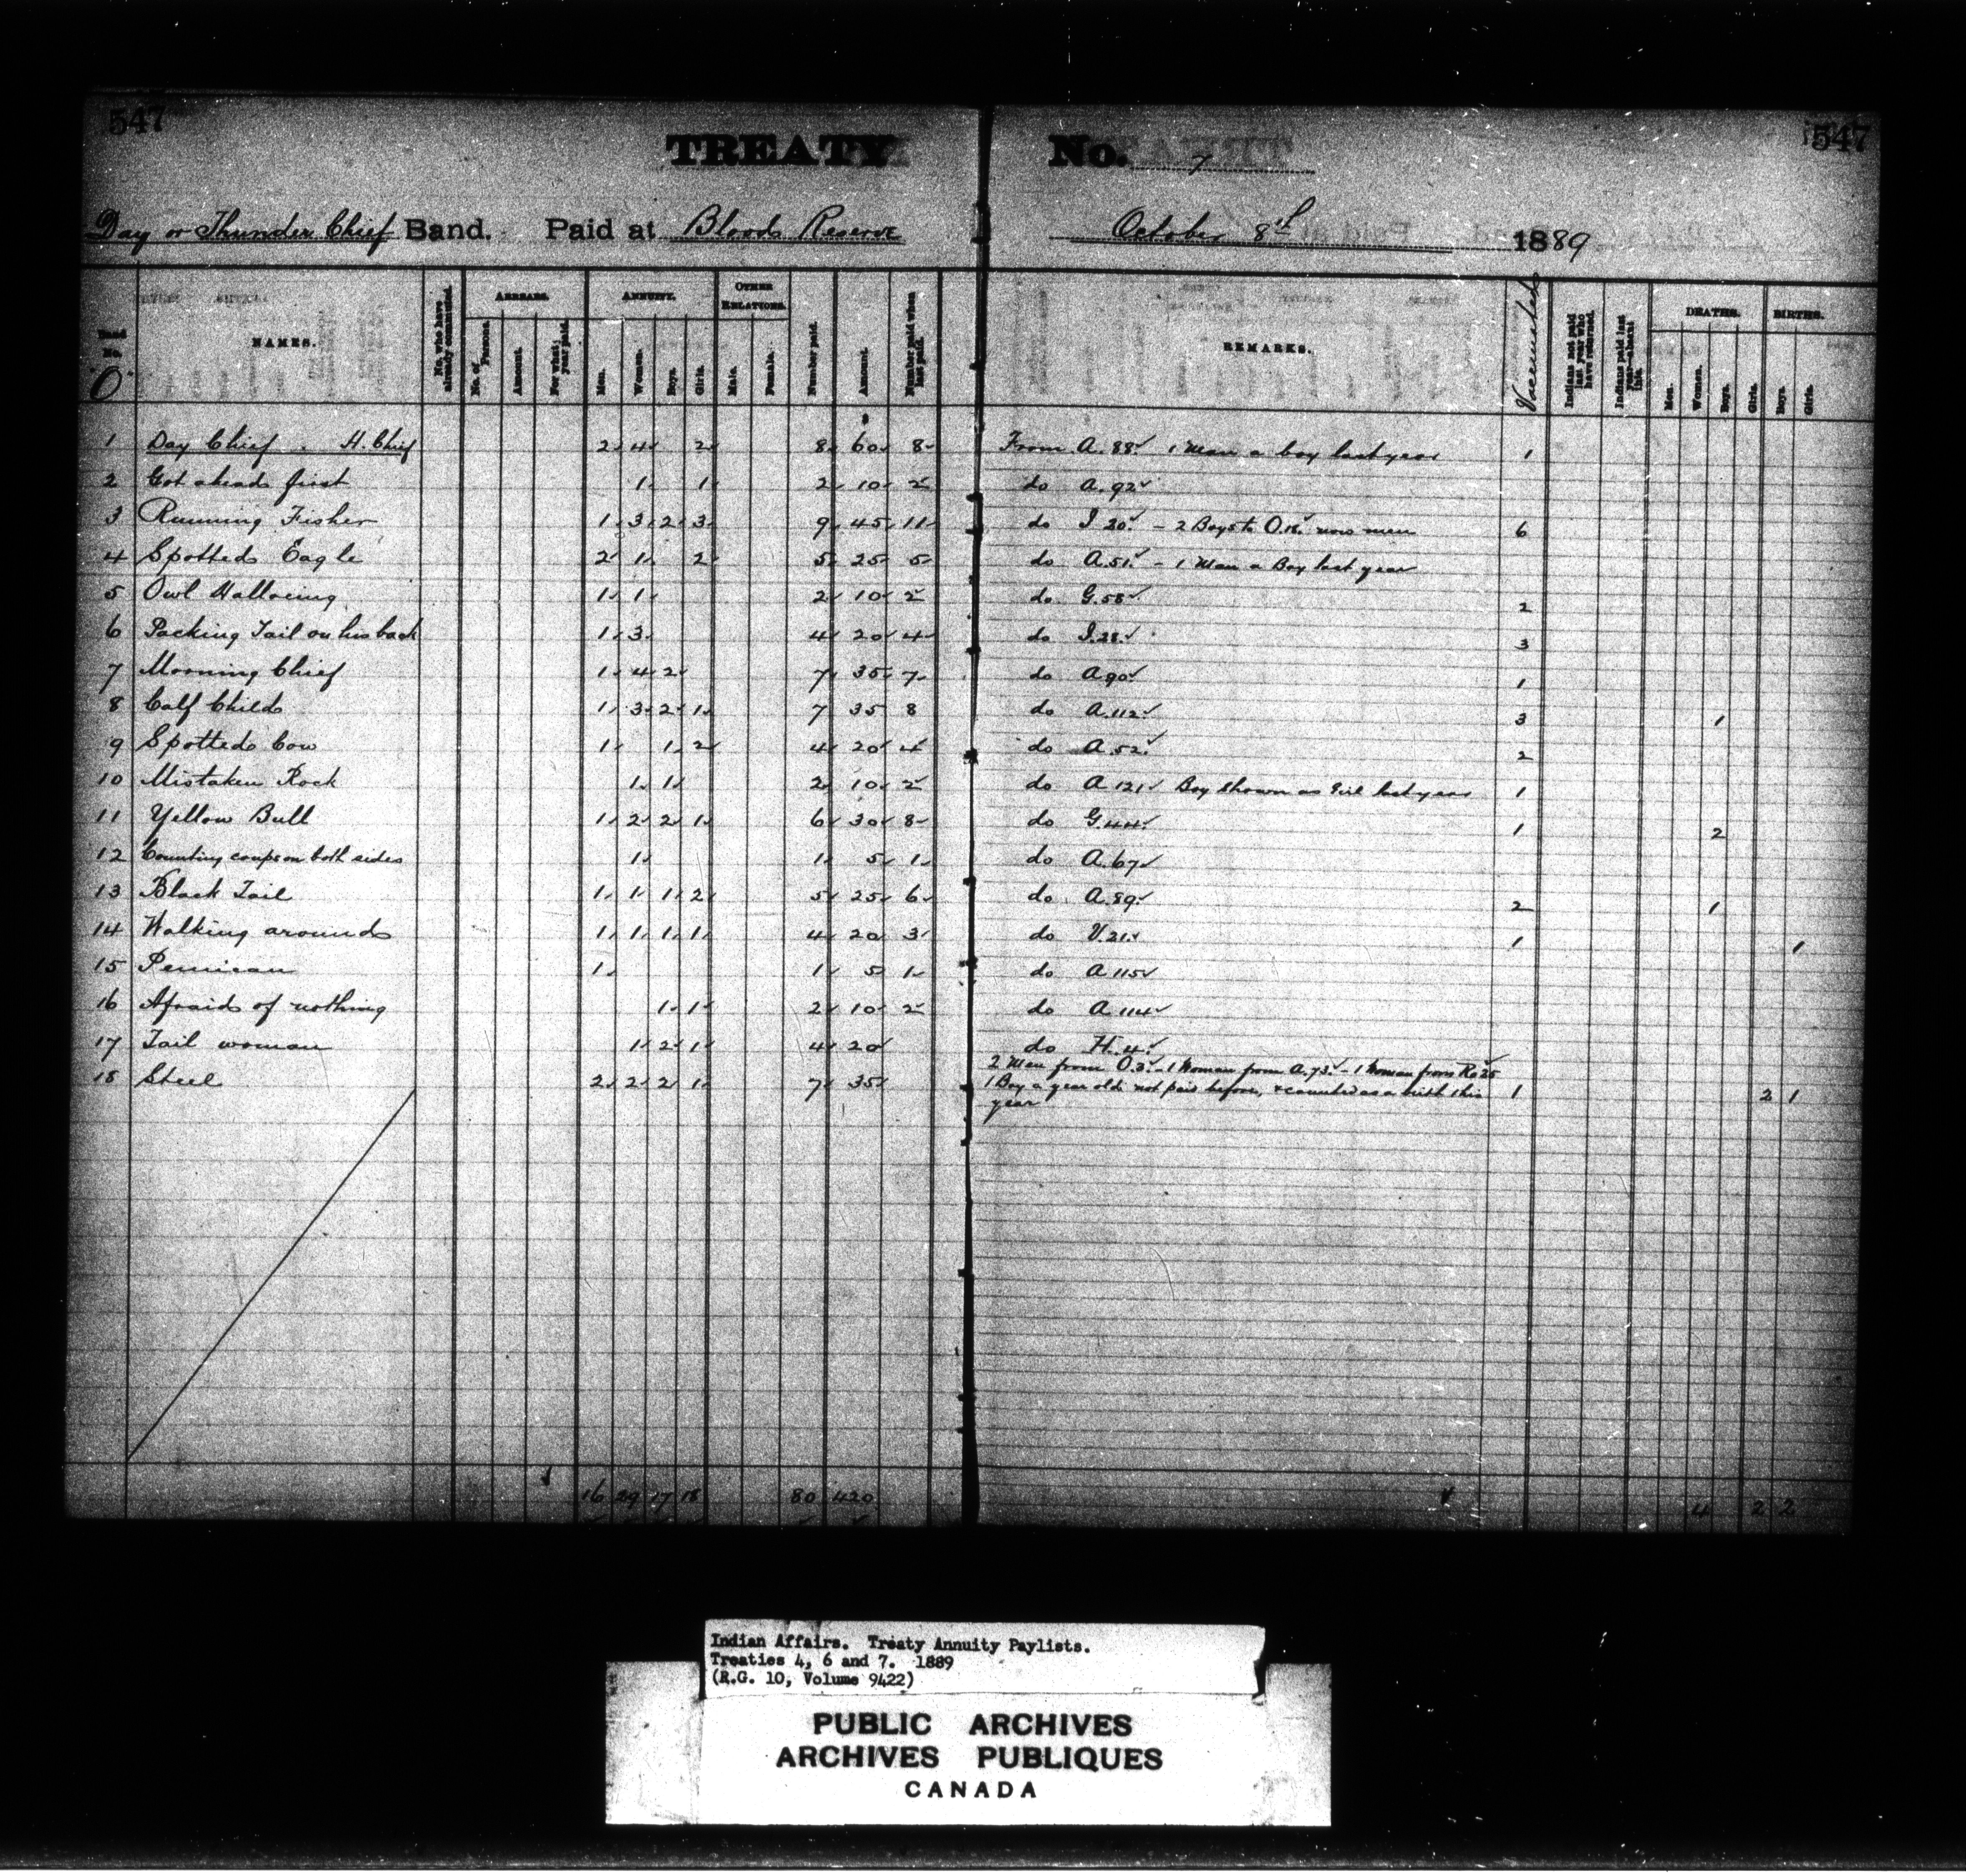 547 547
TREATY No. 7
Day or Thunder Chief Band. Paid at Blood Reserve October 8th 1889
Band No. "O" NAMES. No. who have already commuted. ARREARS. No. of Persons. Amount. For what year paid. ANNUITY. Men. Women. Boys. Girls. OTHER RELATIONS. Male. Female. Number paid. Amount. Number paid when last paid. REMARKS. Vaccinated Indians not paid last year who have returned. Indians paid last year—absent this. DEATHS. Men. Women. Boys. Girls. BIRTHS. Boys. Girls.
1 Day Chief . H. Chief 2 4 2 8 60 8 From A. 88 1 Man a boy last year 1
2 Got ahead first 1 1 2 10 2 do A. 92
3 Running Fisher 1 3 2 3 9 45 11 do I 20 - 2 Boys to O.18 now men 6
4 Spotted Eagle 2 1 2 5 25 5 do A. 51 - 1 Man a Boy last year
5 Owl Halloeing 1 1 2 10 2 do G. 58 2
6 Packing Tail on his back 1 3 4 20 4 do I. 28 3
7 Morning Chief 1 4 2 7 35 7 do A 90 1
8 Calf Child 1 3 2 1 7 35 8 do A. 112 3 1
9 Spotted Cow 1 1 2 4 20 4 do A. 52 2
10 Mistaken Rock 1 1 2 10 2 do A 121 Boy shown as Girl last year 1
11 Yellow Bull 1 2 2 1 6 30 8 do G. 44 1 2
12 Counting coups on both sides 1 1 5 1 do A. 67
13 Black Tail 1 1 1 2 5 25 6 do A. 89 2 1
14 Walking around 1 1 1 1 4 20 3 do V. 21 1 1
15 Pemican 1 1 5 1 do A 115
16 Afraid of nothing 1 1 2 10 2 do A 114
17 Tail woman 1 2 1 4 20 do H. 4
18 Steel 2 2 2 1 7 35 2 Men from O.3 - 1 Woman from A. 73 - 1 Woman from R. 25
1 Boy a year old not paid before, & counted as a birth this 1 2 1
year
16 29 17 18 80 420 4 2 2
Indian Affairs. Treaty Annuity Paylists.
Treaties 4, 6 and 7. 1889
(R.G. 10, Volume 9422)
PUBLIC ARCHIVES
ARCHIVES PUBLIQUES
CANADA